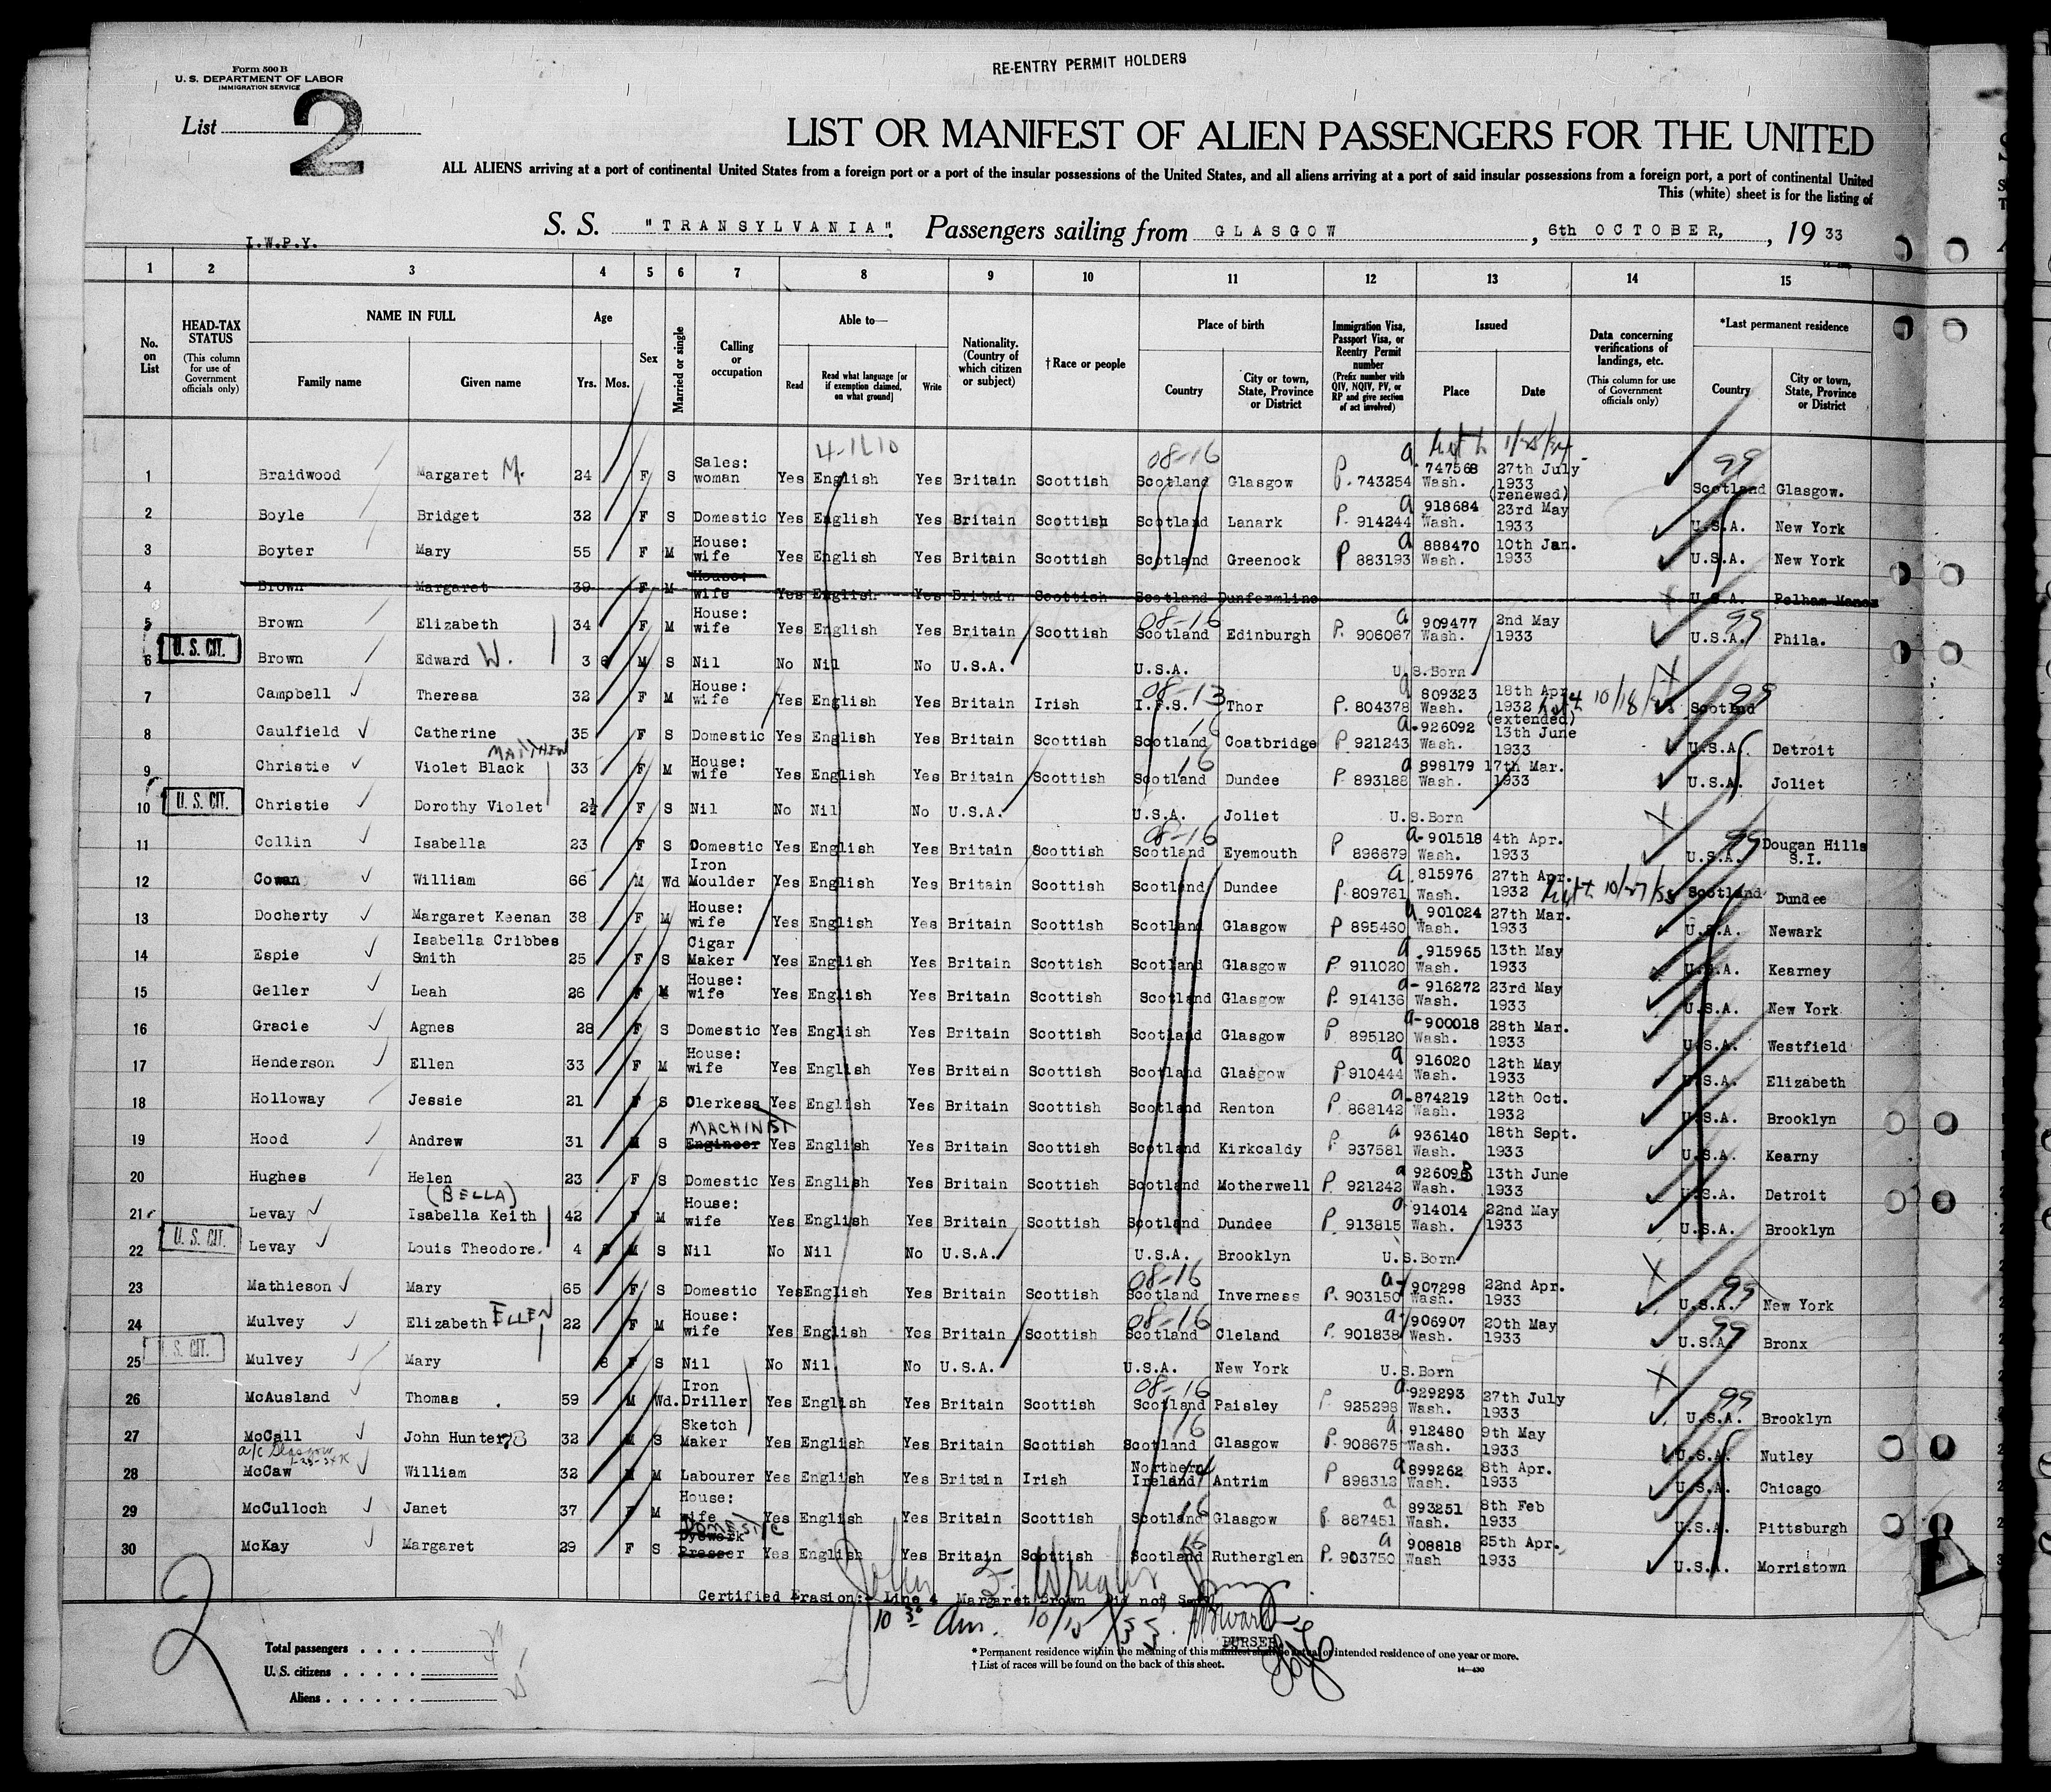 RE-ENTRY PERMIT HOLDERS
Form 500 B
U. S. DEPARTMENT OF LABOR
IMMIGRATION SERVICE
List 2
LIST OR MANIFEST OF ALIEN PASSENGERS FOR THE UNITED
ALL ALIENS arriving at a port of continental United States from a foreign port or a port of the insular possessions of the United States, and all aliens arriving at a port of said insular possessions from a foreign port, a port of continental United
This (white) sheet is for the listing of
S. S. "TRANSYLVANIA". Passengers sailing from GLASGOW, 6th OCTOBER, , 19 33
I.W.P.Y.
1 2 3 4 5 6 7 8 9 10 11 12 13 14 15
No. on List
HEAD-TAX STATUS (This column for use of Government officials only)
NAME IN FULL
Family name Given name
Age
Yrs. Mos.
Sex
Married or single
Calling or occupation
Able to—
Read Read what language [or if exemption claimed, on what ground] Write
Nationality. (Country of which citizen or subject)
† Race or people
Place of birth
Country City or town, State, Province or District
Immigration Visa, Passport Visa, or Reentry Permit number (Prefix number with QIV, NQIV, PV, or RP and give section of act involved)
Issued
Place Date
Data concerning verifications of landings, etc. (This column for use of Government officials only)
*Last permanent residence
Country City or town, State, Province or District
1 Braidwood Margaret M. 24 F S Sales: woman Yes English Yes Britain Scottish 08-16 Scotland Glasgow P. 743254 a 747568 Wash. 27th July 1933 (renewed) 99 Scotland Glasgow.
2 Boyle Bridget 32 F S Domestic Yes English Yes Britain Scottish Scotland Lanark P. 914244 a 918684 Wash. 23rd May 1933 U.S.A. New York
3 Boyter Mary 55 F M House: wife Yes English Yes Britain Scottish Scotland Greenock P 883193 a 888470 Wash. 10th Jan. 1933 U.S.A. New York
4 Brown Margaret 39 F M House: wife Yes English Yes Britain Scottish Scotland Dunfermline U.S.A. Pelham Manor
5 Brown Elizabeth 34 F M House: wife Yes English Yes Britain Scottish 08-16 Scotland Edinburgh P. 906067 a 909477 Wash. 2nd May 1933 99 U.S.A. Phila.
6 U.S. CIT. Brown Edward W. 3 6 M S Nil No Nil No U.S.A. U.S.A. U.S.Born
7 Campbell Theresa 32 F M House: wife Yes English Yes Britain Irish 08-13 I.F.S. Thor P. 804378 a 809323 Wash. 18th Apr. 1932 (extended) 99 Scotlnd
8 Caulfield Catherine 35 F S Domestic Yes English Yes Britain Scottish 16 Scotland Coatbridge P 921243 a. 926092 Wash. 13th June 1933 U.S.A. Detroit
9 Christie Violet Black MATTHEW 33 F M House: wife Yes English Yes Britain Scottish 16 Scotland Dundee P. 893188 a 898179 Wash. 17th Mar. 1933 U.S.A. Joliet
10 U. S. CIT. Christie Dorothy Violet 2½ F S Nil No Nil No U.S.A. U.S.A. Joliet U.S.Born
11 Collin Isabella 23 F S Domestic Yes English Yes Britain Scottish 08-16 Scotland Eyemouth P 896679 a-901518 Wash. 4th Apr. 1933 99 U.S.A. Dougan Hills S.I.
12 Cowan William 66 M Wd Iron Moulder Yes English Yes Britain Scottish Scotland Dundee P 809761 a. 815976 Wash. 27th Apr. 1932 Scotland Dundee
13 Docherty Margaret Keenan 38 F M House: wife Yes English Yes Britain Scottish Scotland Glasgow P 895460 a 901024 Wash. 27th Mar. 1933 U.S.A. Newark
14 Espie Isabella Cribbes Smith 25 F S Cigar Maker Yes English Yes Britain Scottish Scotland Glasgow P. 911020 a .915965 Wash. 13th May 1933 U.S.A. Kearney
15 Geller Leah 26 F M House: wife Yes English Yes Britain Scottish Scotland Glasgow P. 914136 a- 916272 Wash. 23rd May 1933 U.S.A. New York
16 Gracie Agnes 28 F S Domestic Yes English Yes Britain Scottish Scotland Glasgow P 895120 a-900018 Wash. 28th Mar. 1933 U.S.A. Westfield
17 Henderson Ellen 33 F M House: wife Yes English Yes Britain Scottish Scotland Glasgow P. 910444 a 916020 Wash. 12th May 1933 U.S.A. Elizabeth
18 Holloway Jessie 21 F S Clerkess Yes English Yes Britain Scottish Scotland Renton P 868142 a-874219 Wash. 12th Oct. 1932 U.S.A. Brooklyn
19 Hood Andrew 31 M S MACHINIST Engineer Yes English Yes Britain Scottish Scotland Kirkcaldy P. 937581 a 936140 Wash. 18th Sept. 1933 U.S.A. Kearny
20 Hughes Helen 23 F S Domestic Yes English Yes Britain Scottish Scotland Motherwell P. 921242 a 926093 Wash. 13th June 1933 U.S.A. Detroit
21 Levay (BELLA) Isabella Keith 42 F M House: wife Yes English Yes Britain Scottish Scotland Dundee P. 913815 a 914014 Wash. 22nd May 1933 U.S.A. Brooklyn
22 U. S. CIT. Levay Louis Theodore. 4 8 M S Nil No Nil No U.S.A. U.S.A. Brooklyn U.S.Born
23 Mathieson Mary 65 F S Domestic Yes English Yes Britain Scottish 08-16 Scotland Inverness P. 903150 a- 907298 Wash. 22nd Apr. 1933 99 U.S.A. New York
24 Mulvey Elizabeth ELLEN 22 F M House: wife Yes English Yes Britain Scottish 08-16 Scotland Cleland P. 901838 a- 906907 Wash. 20th May 1933 99 U.S.A. Bronx
25 U. S. CIT. Mulvey Mary 8 F S Nil No Nil No U.S.A. U.S.A. New York U.S.Born
26 McAusland Thomas 59 M Wd. Iron Driller Yes English Yes Britain Scottish 08-16 Scotland Paisley P 925298 a 929293 Wash. 27th July 1933 99 U.S.A. Brooklyn
27 McCall John Hunter 32 M S Sketch Maker Yes English Yes Britain Scottish 16 Scotland Glasgow P. 908675 a 912480 Wash. 9th May 1933 U.S.A. Nutley
28 a/c Glasgow McCaw William 32 M M Labourer Yes English Yes Britain Irish Northern Ireland 14 Antrim P 898312 a 899262 Wash. 8th Apr. 1933 U.S.A. Chicago
29 McCulloch Janet 37 F M House: wife Yes English Yes Britain Scottish 16 Scotland Glasgow P. 887451 a 893251 Wash. 8th Feb 1933 U.S.A. Pittsburgh
30 McKay Margaret 29 F S DOMESTIC Dyework Presser Yes English Yes Britain Scottish 16 Scotland Rutherglen P. 903750 a 908818 Wash 25th Apr. 1933 U.S.A. Morristown
Certified Erasion:- Line 4 Margaret Brown Did not Sail
10 30 am. 10/15/33.
PURSER
2
Total passengers
U. S. citizens
Aliens
* Permanent residence within the meaning of this manifest shall be actual or intended residence of one year or more.
† List of races will be found on the back of this sheet.
14—430